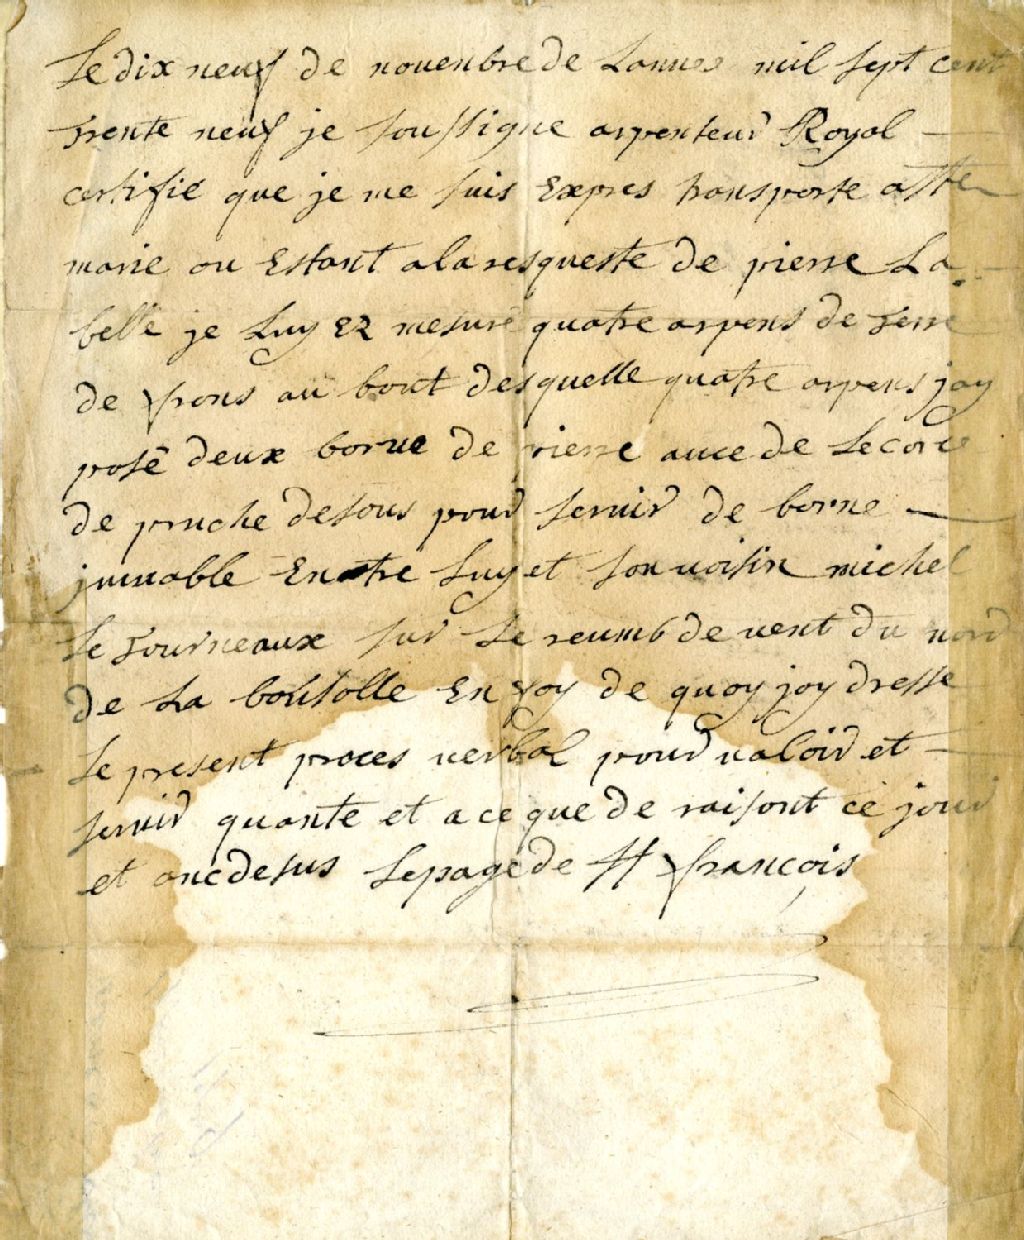 Le dix neuf de nouenbre de Lannee mil sept cent
trente neuf je sou ssigne arpenteur Royal
certifie que je me suis Expres transporte a Ste
marie ou Estant a la resqueste de pierre La
belle je Luy Ez mesure quatre arpens de terre
de frons au bout desquelle quatre arpens jay
posé deux borne de pierre auce de Lecorce
de pruche desous pour seruir de borne
jmuable Entre Luy et son uoisin michel
Le tourneaux sur Le reumb de uent du nord
de La boussolle En foy de quoy jay dresse
Le present proces uerbal pour ualoir et
seruir quante et a ce que de raisont ce jour
et anc desus Lepage de St francois